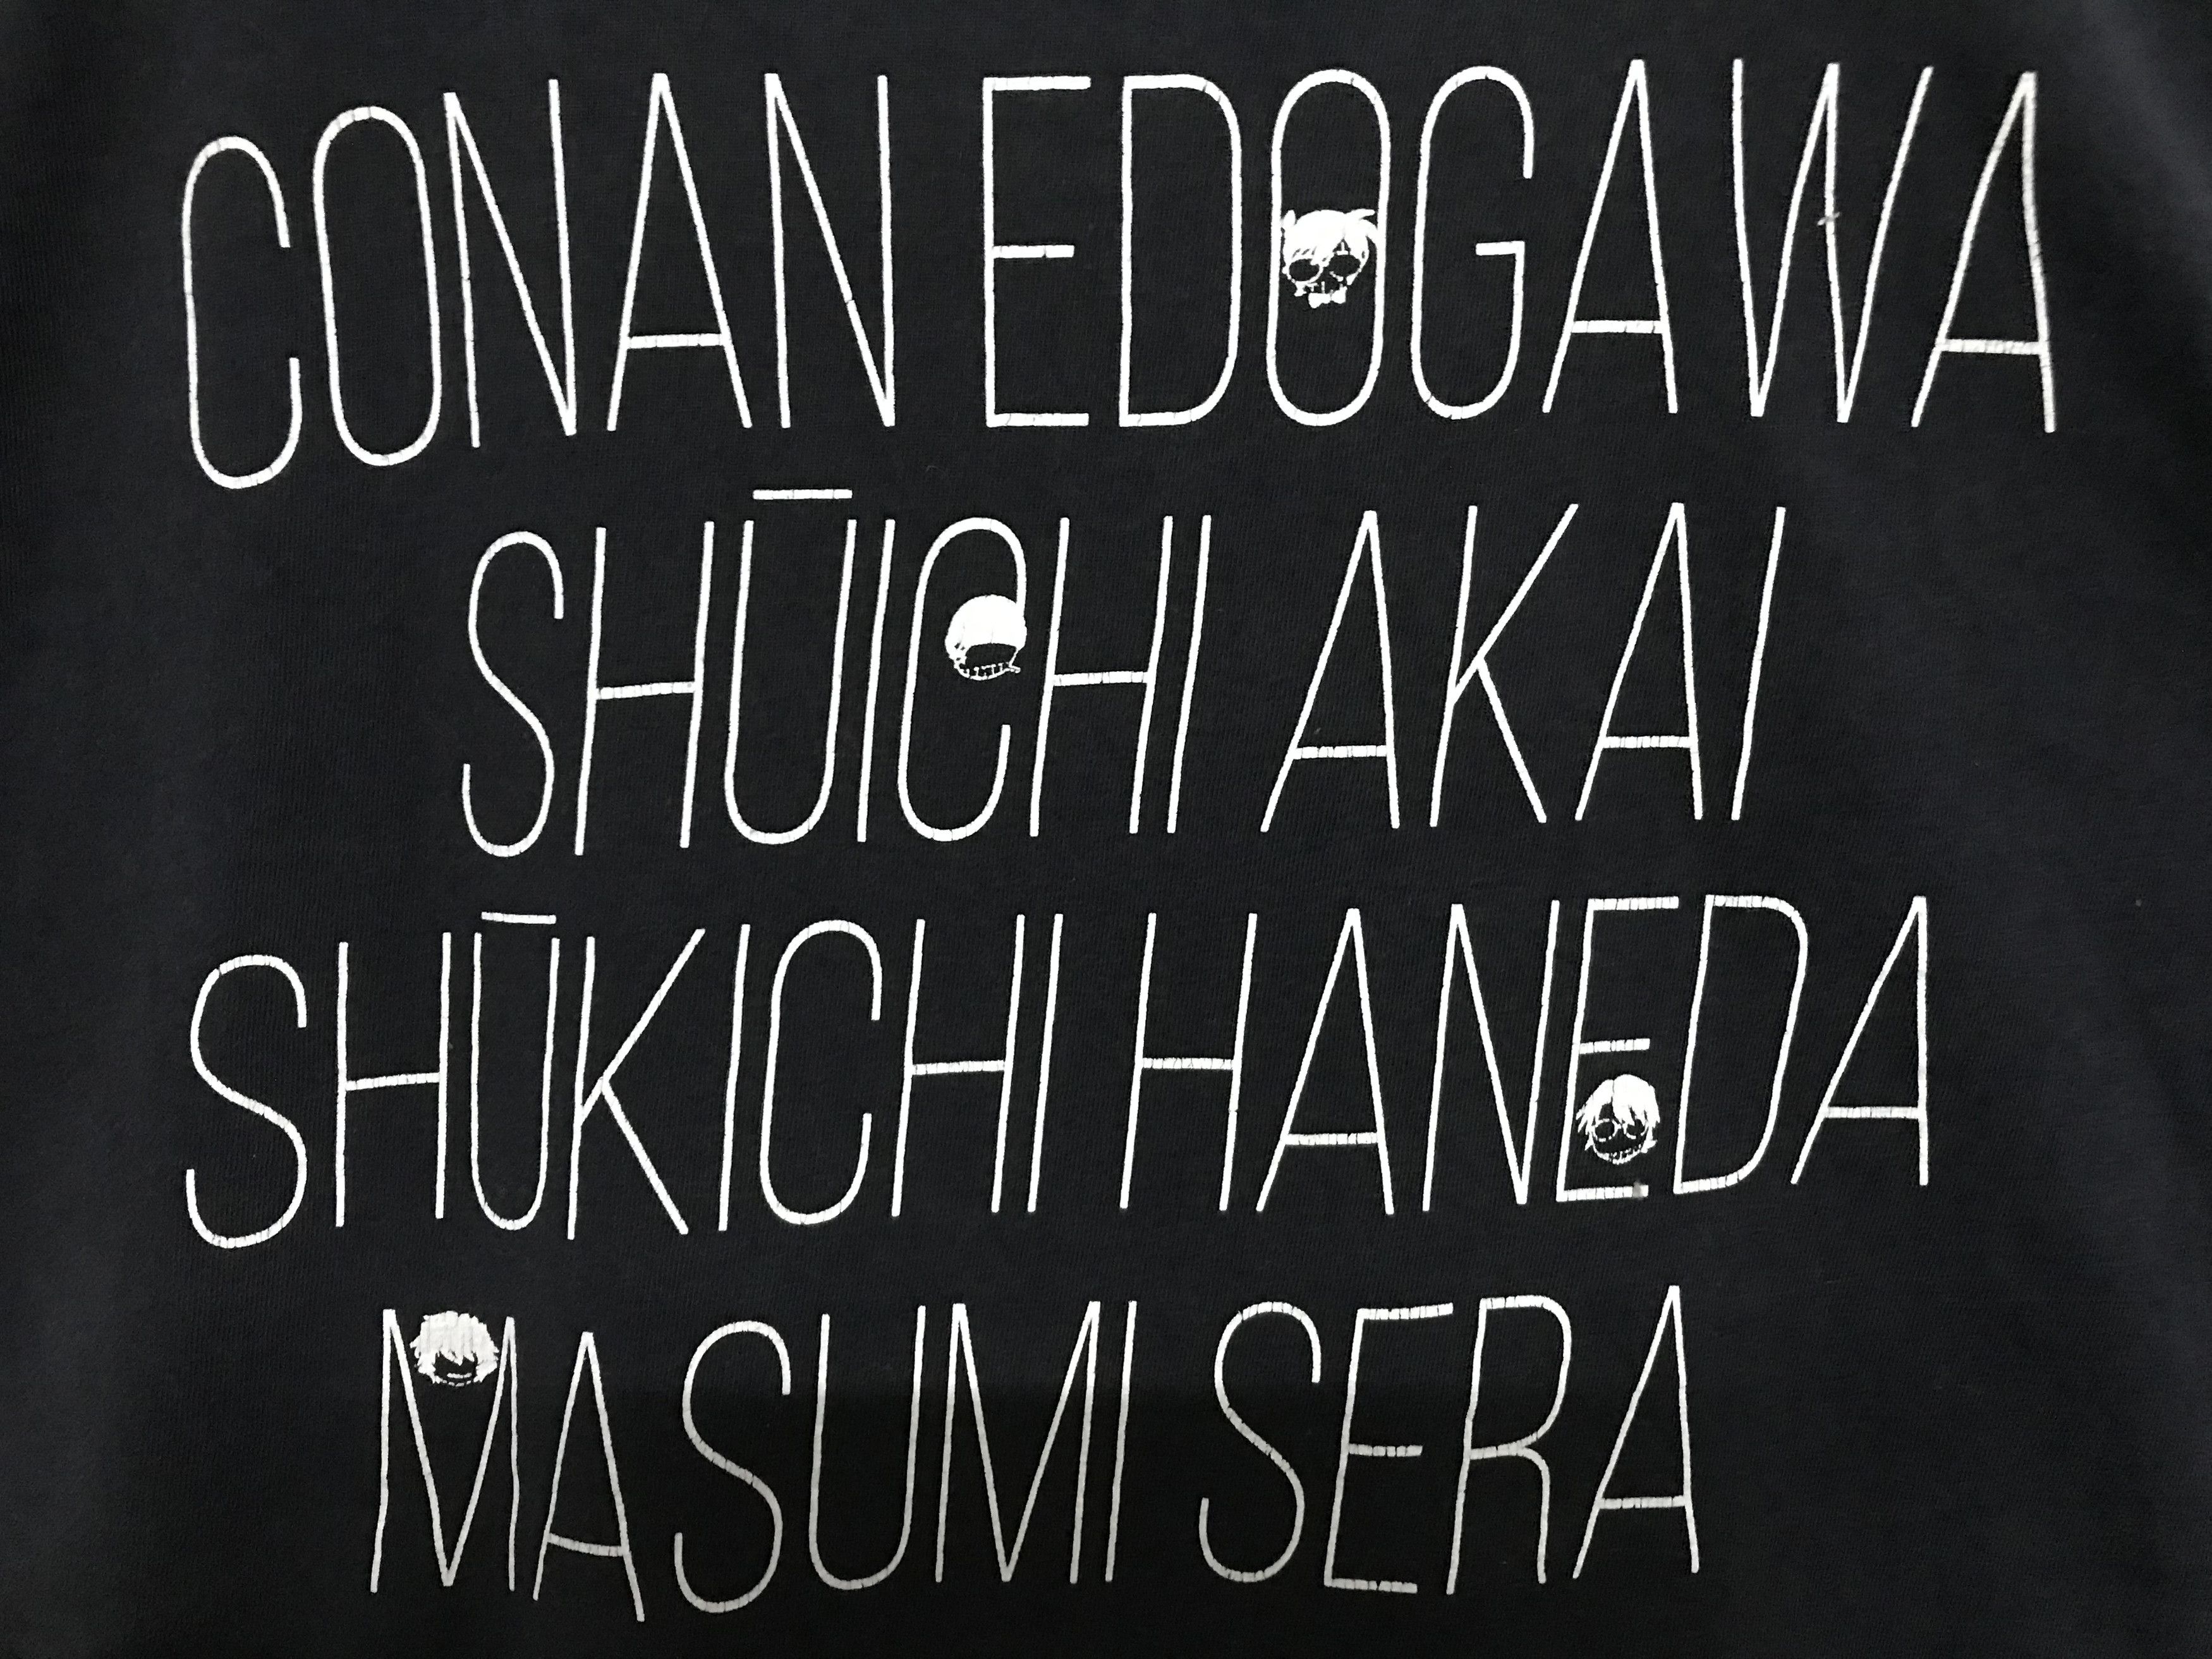 CONAN EDOGAWA
SHŪICHI AKAI
SHŪKICHI HANEDA
MASUMI SERA